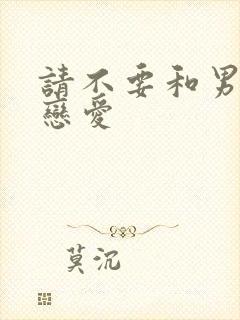 請不要和男
戀愛
莫沉